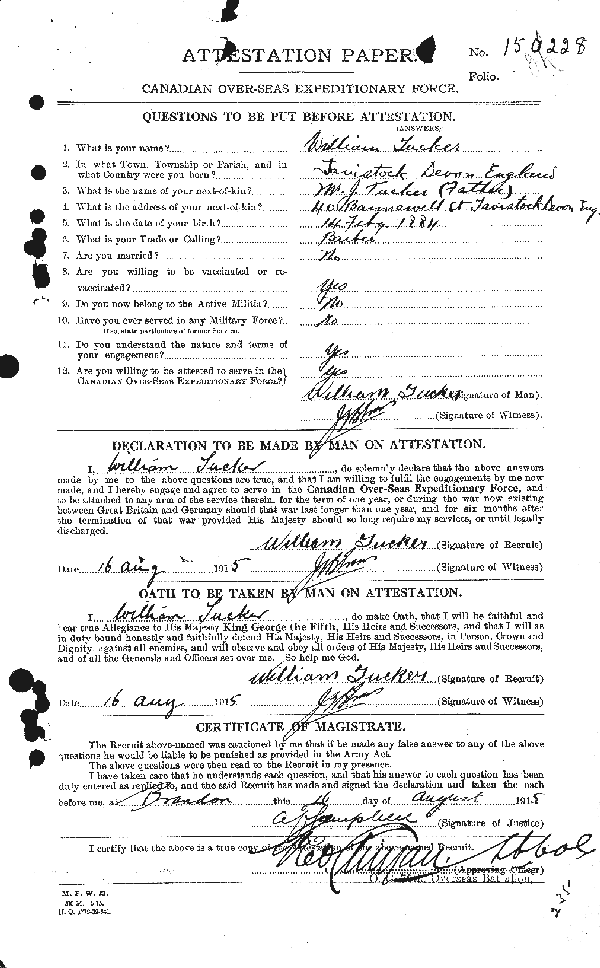 ATTESTATION PAPER.
No. 150228
Folio.
CANADIAN OVER-SEAS EXPEDITIONARY FORCE.
QUESTIONS TO BE PUT BEFORE ATTESTATION.
(ANSWERS)
1. What is your name? William Tucker
2. In what Town, Township or Parish, and in
what Country were you born? Tavistock Devon England
3. What is the name of your next-of-kin? Mr. J. Tucker (Father)
4. What is the address of your next-of-kin? 40 Bannawell St Tavistock Devon Eng.
5. What is the date of your birth? 14 Feby 1884
6. What is your Trade or Calling?
7. Are you married? No
8. Are you willing to be vaccinated or re-
vaccinated? Yes
9. Do you now belong to the Active Militia? No
10. Have you ever served in any Military Force? No
If so, state particulars of former Service.
11. Do you understand the nature and terms of
your engagement? Yes
12. Are you willing to be attested to serve in the
CANADIAN OVER-SEAS EXPEDITIONARY FORCE? Yes
William Tucker (Signature of Man).
(Signature of Witness).
DECLARATION TO BE MADE BY MAN ON ATTESTATION.
I, William Tucker, do solemnly declare that the above answers
made by me to the above questions are true, and that I am willing to fulfil the engagements by me now
made, and I hereby engage and agree to serve in the Canadian Over-Seas Expeditionary Force, and
to be attached to any arm of the service therein, for the term of one year, or during the war now existing
between Great Britain and Germany should that war last longer than one year, and for six months after
the termination of that war provided His Majesty should so long require my services, or until legally
discharged.
William Tucker (Signature of Recruit)
Date 16 Aug 1915 (Signature of Witness)
OATH TO BE TAKEN BY MAN ON ATTESTATION.
I, William Tucker, do make Oath, that I will be faithful and
bear true Allegiance to His Majesty King George the Fifth, His Heirs and Successors, and that I will as
in duty bound honestly and faithfully defend His Majesty, His Heirs and Successors, in Person, Crown and
Dignity, against all enemies, and will observe and obey all orders of His Majesty, His Heirs and Successors,
and of all the Generals and Officers set over me. So help me God.
William Tucker (Signature of Recruit)
Date 16 Aug 1915 (Signature of Witness)
CERTIFICATE OF MAGISTRATE.
The Recruit above-named was cautioned by me that if he made any false answer to any of the above
questions he would be liable to be punished as provided in the Army Act.
The above questions were then read to the Recruit in my presence.
I have taken care that he understands each question, and that his answer to each question has been
duly entered as replied to, and the said Recruit has made and signed the declaration and taken the oath
before me, at Brandon this 16 day of August 1915
(Signature of Justice)
I certify that the above is a true copy of the Attestation of the above-named Recruit.
(Approving Officer)
Overseas Battalion
M. F. W. 23.